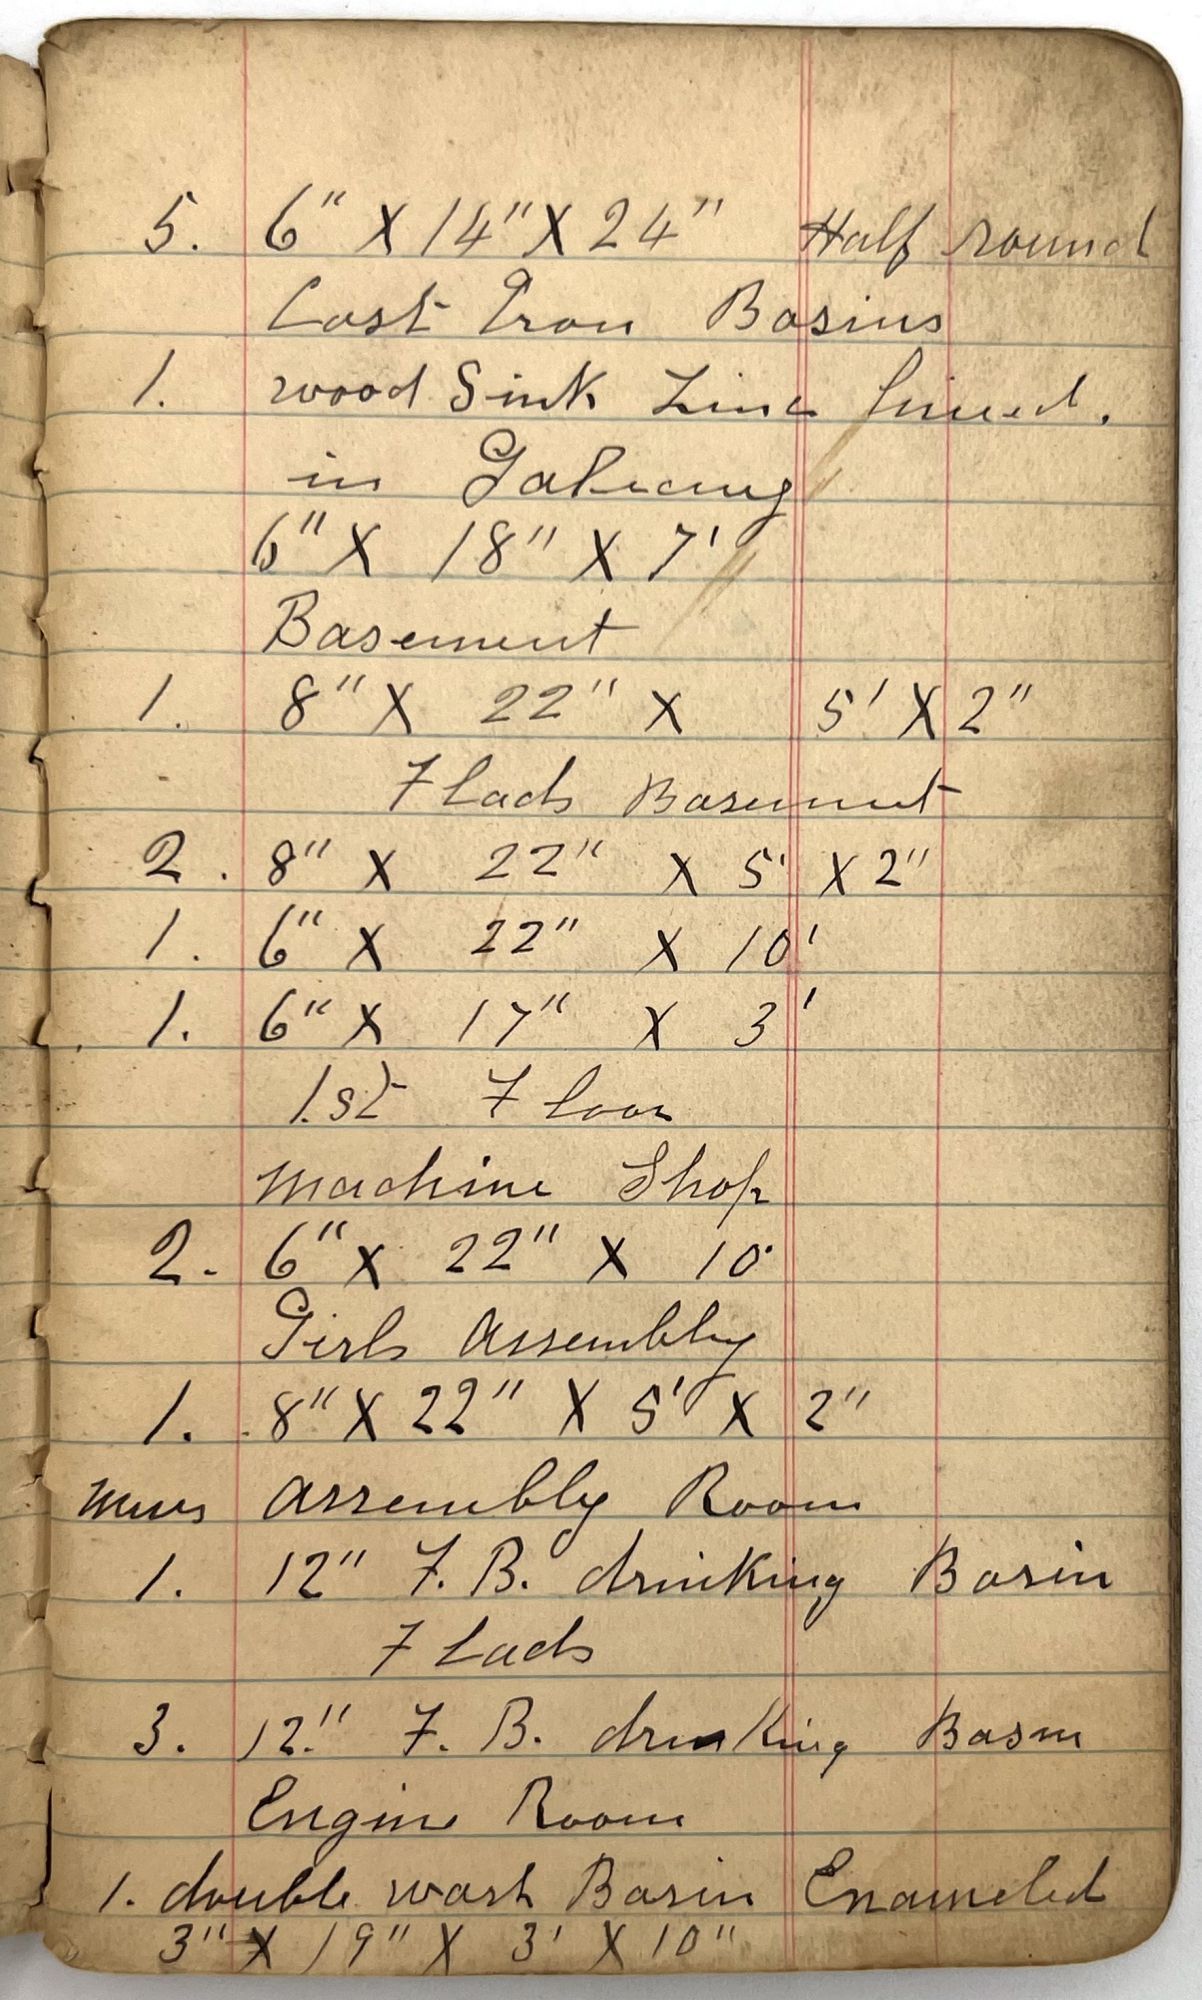 5. 6" X 14" X 24" Half round
Cast Iron Basins
1. wood Sink Zinc lined.
in
6" X 18" X 7'
Basement
1. 8" X 22" X 5' X 2"
7 Lads Basement
2. 8" X 22" X 5' X 2"
1. 6" X 22" X 10'
1. 6" X 17" X 3'
1.st Floor
Machine Shop
2. 6" X 22" X 10'
Girls Assembly
1. 8" X 22" X 5' X 2"
Mens Assembly Room
1. 12" F. B. drinking Basin
7 Lads
3. 12" F. B. drinking Basin
Engine Room
1. double wash Basin Enameled
3" X 19" X 3' X 10"